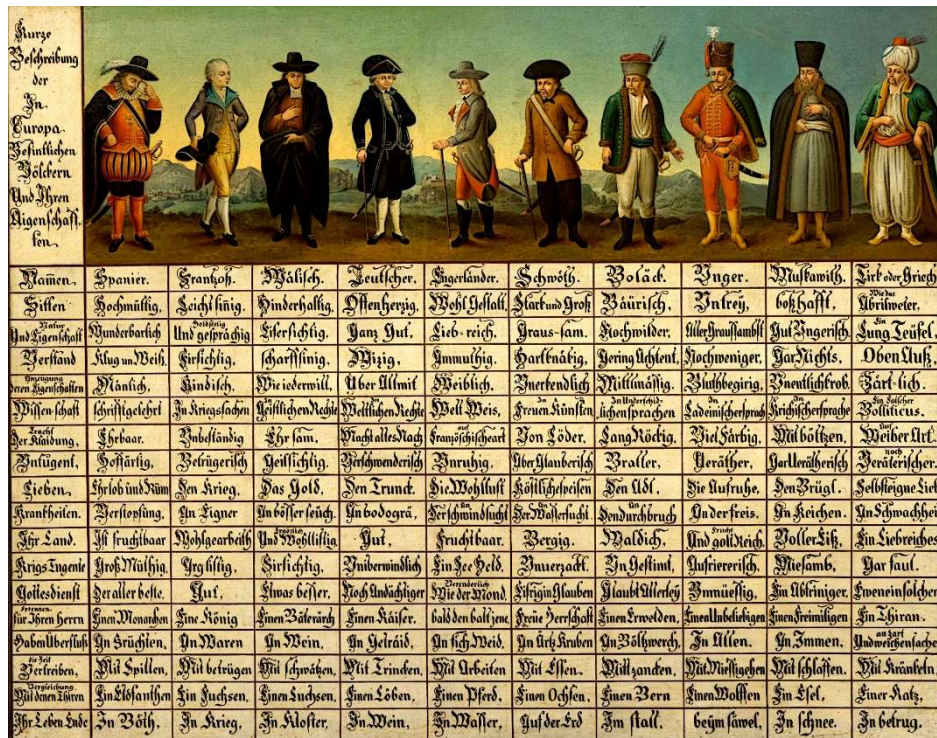 Kurze
Beschreibung
der
In
Europa
Befintlichen
Völckern
Und Ihren
Aigenschaff-
ten
Namen. Spanier. Frantzoß. Wälisch. Teutscher. Engerländer. Schwöth. Boläck. Unger. Muskawith. Tirk oder Griech
Sitten Hochmüttig, Leichtsinig, Hinderhaltig, Offenherzig, Wohl Gestalt, Stark und Groß Bäurisch, Untrey, boßhafft, Wie das Abrilweter.
Natur Und Eigenschaft Wunderbarlich Holdseelig Und gesprächig Eifersichtig, Ganz Gut, Lieb-reich, Graus-sam, Nochwilder, Aller Graussambst Gut Ungerisch, Ein Lung Teüfel,
Verstand Klug un Weiß, Firsichtig, scharffsinig, Wizig, Anmuthig, Hartknäbig, Gering Achtent, Nochweniger, Gar Nichts, Oben Auß,
Anzeugung deren Eigenschaften Mänlich, Kindisch, Wie iederwill, Über Allmit Weiblich, Unerkendlich Mittlmässig, Bluthbegirig, Unentlich krob, Zärt-lich.
Wissenschaft schrifftgelehrt In Kriegssachen In Geistlichen Rechte In Weltlichen Rechte Welt Weis, In Freuen Künsten In Underschidlichen sprachen In Ladeinischersprach In Krichischersprache Ein Falscher Bolliticus.
Tracht Der Klaidung, Ehrbaar. Unbeständig Ehrsam. Macht alles Nach auf Französischeart Von Löder, Lang Röckig, Viel Färbig, Mit böltzen, Auf Weiber Art.
Untugent, Hoffärtig, Betrügerisch Geillsichtig. Verschwenderisch Unruhig, Über Glauberisch Braller, Veräther, Gar Verätherisch noch Verätherischer.
Lieben Ehrlob und Rüm Den Krieg, Das Gold, Den Trunck. Die Wohllust Köstlichespeisen Den Adl, Die Aufruhe, Den Brügl. Selbsteigne Lieb
Krankheiten. Verstopfung, An Eigner An bösser seüch. An bodogrä, An Der schwindsucht An Der Wassersucht An Den durchbruch An der freis. An Keichen. An Schwachheit
Ihr Land. Ist fruchtbaar Wohlgearbeith Ergözlich Und Wohllistig Gut, Fruchtbaar. Bergig. Waldich. Frucht Und golt Reich. Voller Eiß, Ein Liebreiches
Krigs Tugente Groß Müthig, Arg listig. Firsichtig. Uniberwindlich Ein See Held. Unuerzackt. Un Gestimt, Aufrierisch. Miesamb, Gar faul.
Gottesdienst Der aller beste. Gut, Etwas besser. Noch Andächtiger Veränderlich Wie der Mond, Eifrig in Glauben Glaubt Allerley Unmüessig, Ein Abtriniger, Eweneinsolcher
Erkennen für Ihren herrn Einen Monarchen Eine König Einen Bäterärch Einen Kaiser, bald den balt jene, Freüe Herrschaft Einen Erwelden, Einen Unbeliebigen Einen freimilligen Ein Thiran.
Haben Überfluß In Früchten, An Waren In Wein, In Geträid, An sich Weid, In Ärtz Kruben An Böltzwerch, In Allen. In Immen, an zart Und weichensachen
die Zeit Vertreiben, Mit Spillen, Mit betrügen Mit schwätzen, Mit Trincken, Mit Arbeiten Mit Essen. Mitt zancken, Mit Miessigehen Mit schlaffen, Mit Kränkeln,
Vergleichung Mit denen Thiren Ein Elofanthen Ein Fuchsen, Einen Luchsen, Einen Löben, Einen Pferd, Einen Ochsen, Einen Bern Einen Wolffen Ein Esel, Einer Katz,
Ihr Leben Ende In Böth. In Krieg, In Kloster, In Wein, In Wasser, Auf der Erd Im stall. beym säwel, In schnee. In betrug.